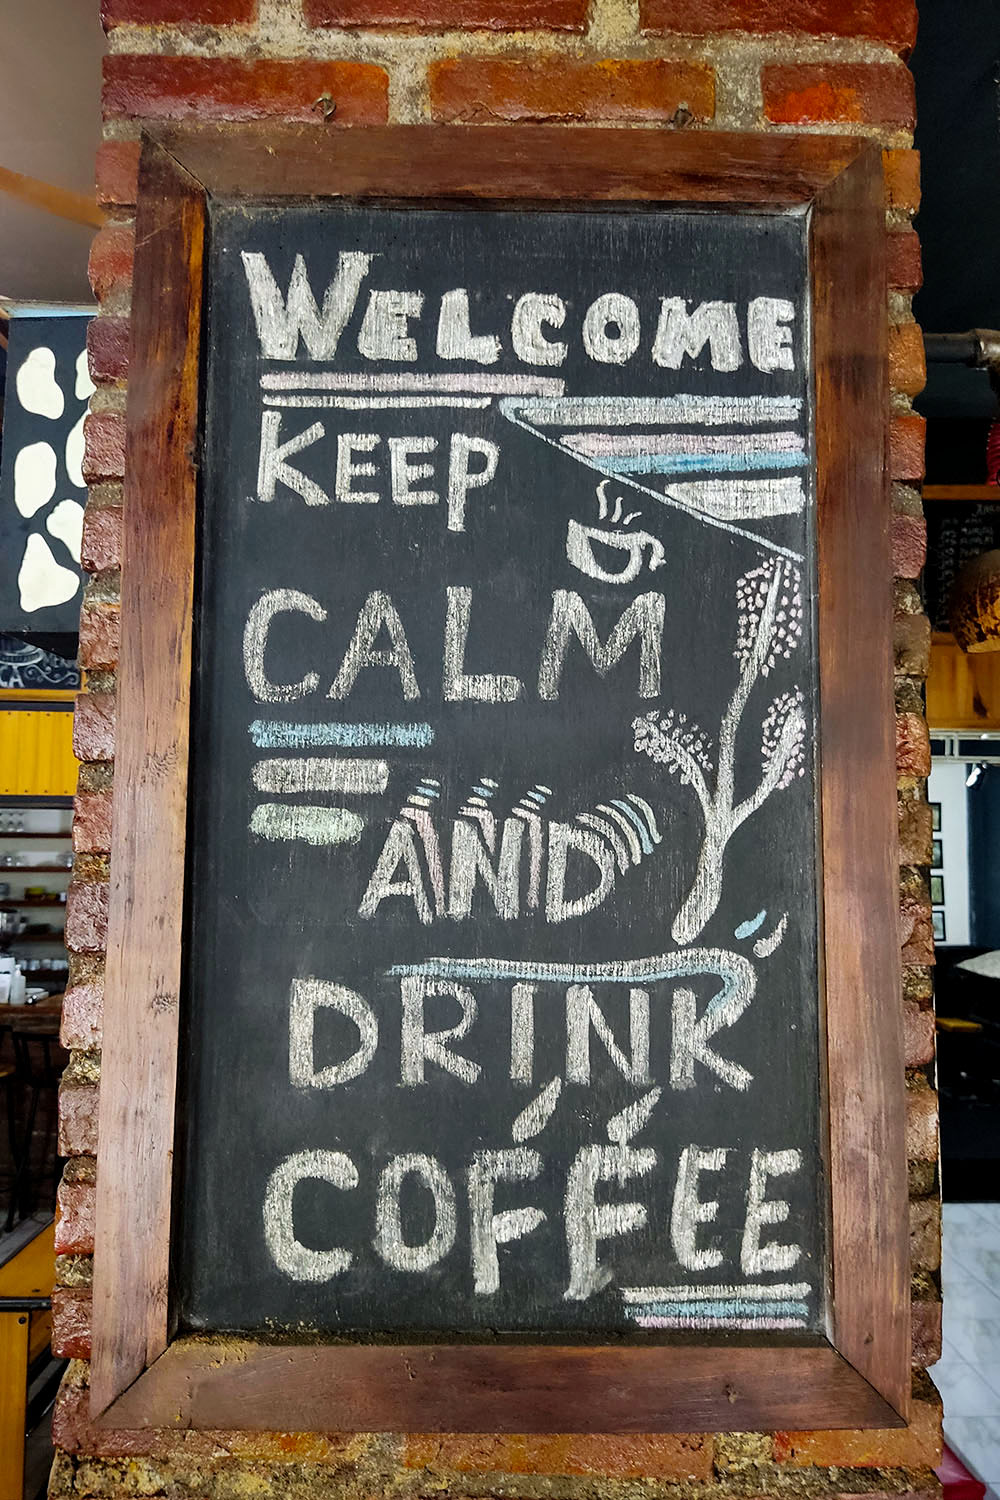 WELCOME
KEEP
CALM
AND
DRINK
COFFEE